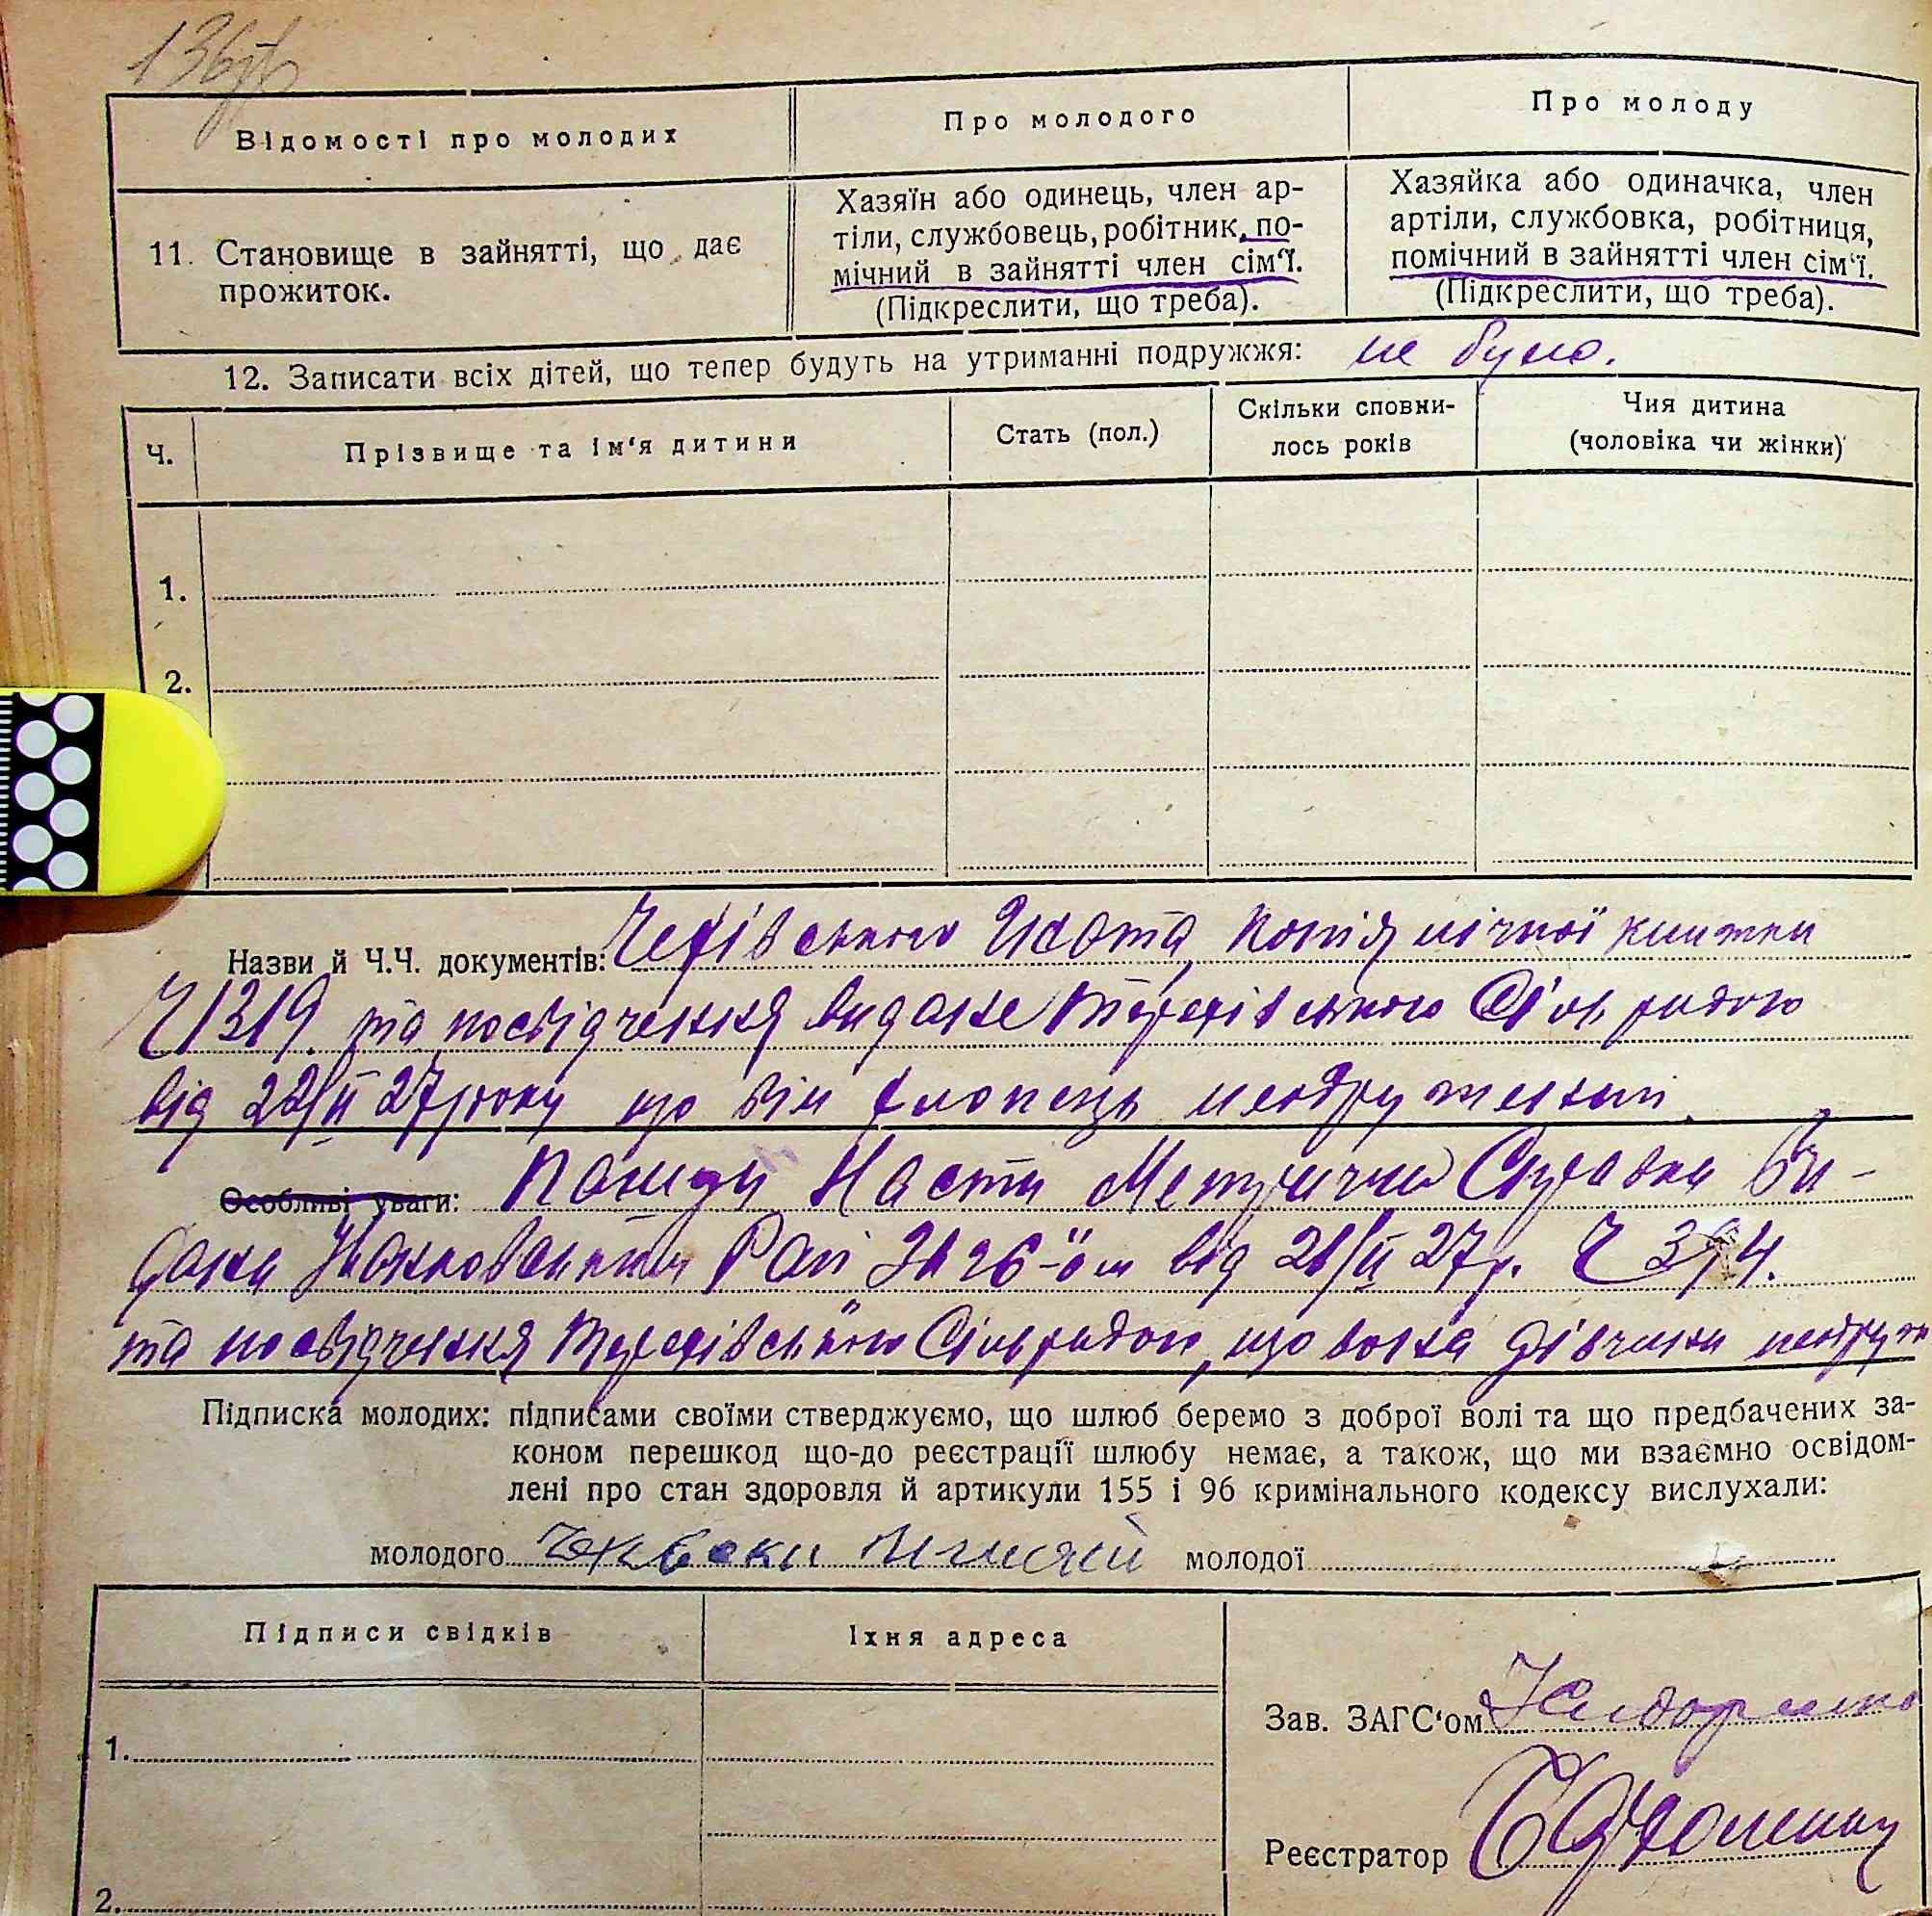 Відомості про молодих
Про молодого
Про молоду
11. Становище в зайнятті, що дає
прожиток.
Хазяїн або одинець, член ар-
тіли, службовець, робітник, по-
мічний в зайнятті член сім'ї.
(Підкреслити, що треба).
Хазяйка або одиначка, член
артіли, службовка, робітниця,
помічний в зайнятті член сім'ї.
(Підкреслити, що треба).
12. Записати всіх дітей, що тепер будуть на утриманні подружжя: не було.
Ч.
Прізвище та ім'я дитини
Стать (пол.)
Скільки сповни-
лось років
Чия дитина
(чоловіка чи жінки)
1.
2.
Назви й Ч.Ч. документів: копія книжки
Ч 1319 та посвідчення видане Сільрадою
від 22/II 27 року що він хлопець неодружений
Особливі уваги: Насти Метрична Справка Ви-
дана Рай від 21/II 27 р. Ч
та посвідчення Сільрадою, що вона дівчина
Підписка молодих: підписами своїми стверджуємо, що шлюб беремо з доброї волі та що предбачених за-
коном перешкод що-до реєстрації шлюбу немає, а також, що ми взаємно освідом-
лені про стан здоровля й артикули 155 і 96 кримінального кодексу вислухали:
молодого молодої
Підписи свідків
Їхня адреса
1.
2.
Зав. ЗАГС'ом
Реєстратор